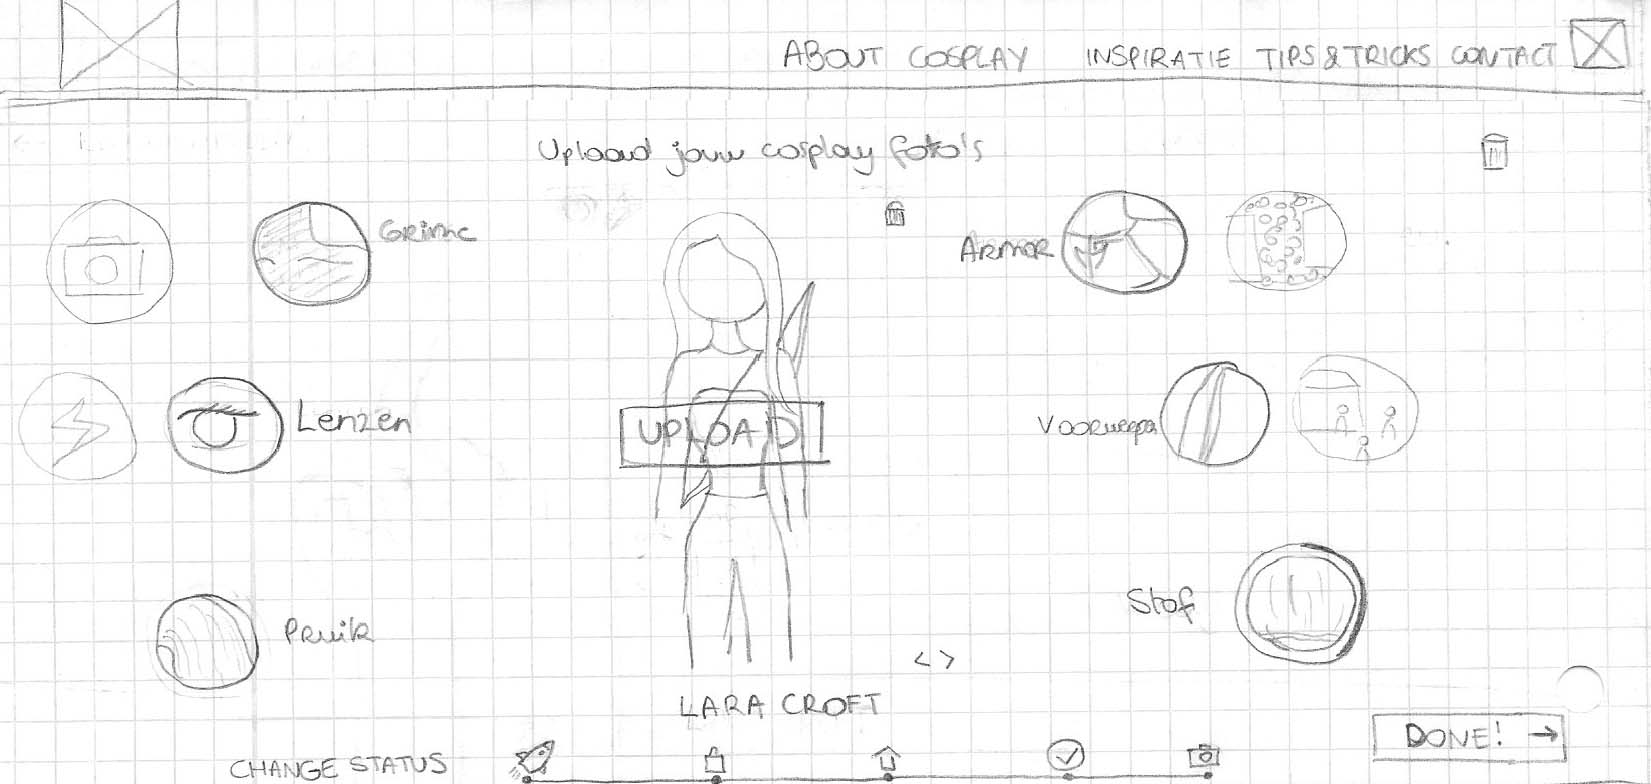 ABOUT COSPLAY INSPIRATIE TIPS & TRICKS CONTACT
Upload jouw cosplay foto's
Grime
Armor
Lenzen
UPLOAD
Voorwerpen
Pruik
Stof
< >
LARA CROFT
DONE! →
CHANGE STATUS